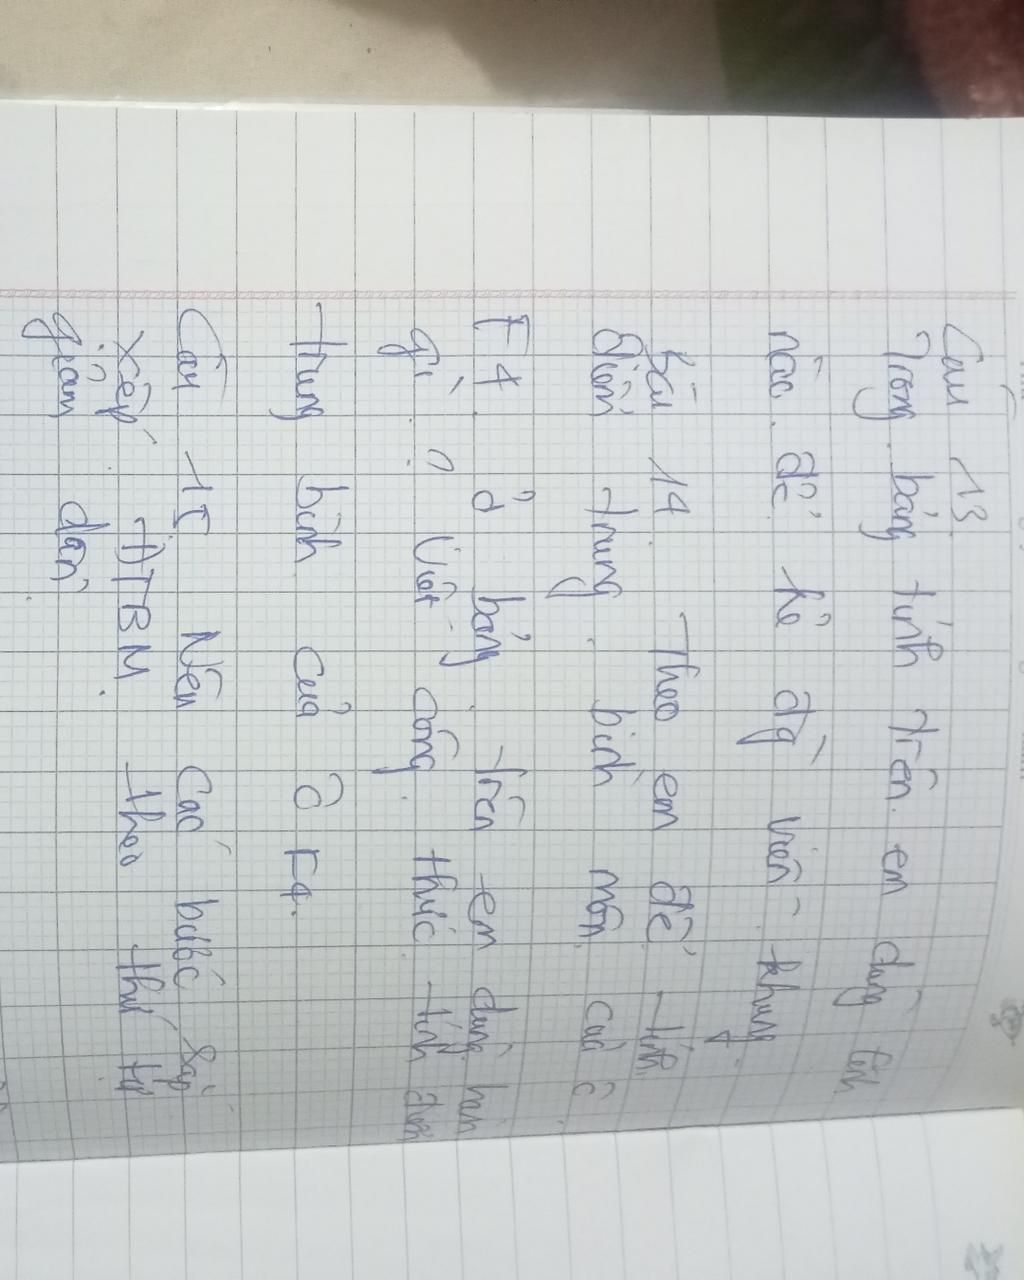 Câu 13
Trong bảng tính trên em dùng lệnh
nào để kẻ đg viền khung
Bài 14 Theo em để tính
điểm trung bình môn của ô
F4 ở bảng trên em dùng hàm
gì? Viết công thức tính điểm
trung bình của ô F4.
Câu 15 Nêu các bước sắp
xếp ĐTBM theo thứ tự
giảm dần.